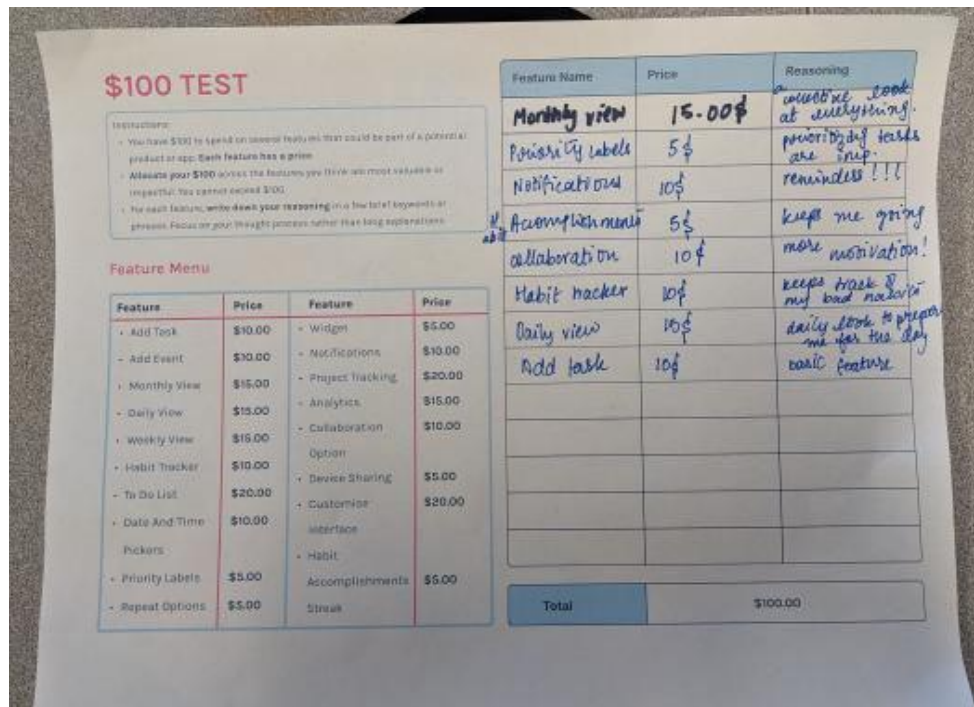 $100 TEST
Instructions:
• You have $100 to spend on several features that could be part of a potential
product or app. Each feature has a price.
• Allocate your $100 across the features you think are most valuable or
impactful. You cannot exceed $100.
• For each feature, write down your reasoning in a few brief keywords or
phrases. Focus on your thought process rather than long explanations.
Feature Menu
Feature Price Feature Price
• Add Task $10.00 • Widget $5.00
• Add Event $10.00 • Notifications $10.00
• Monthly View $15.00 • Project Tracking $20.00
• Daily View $15.00 • Analytics $15.00
• Weekly View $15.00 • Collaboration $10.00
Option
• Habit Tracker $10.00 • Device Sharing $5.00
• To Do List $20.00 • Customise $20.00
Interface
• Date And Time $10.00
Pickers
• Habit
• Priority Labels $5.00 Accomplishments $5.00
• Repeat Options $5.00 Streak
Feature Name Price Reasoning
Monthly view 15.00$ a
look
at everything.
Priority Labels 5$ prioritizing tasks
are imp.
Notifications 10$ reminders!!!
Accomplishments 5$ keeps me going
collaboration 10$ more motivation!
Habit hacker 10$ keeps track of
my bad
Daily view 15$ daily look to prepare
me for the day
Add task 10$ basic feature
Total $100.00